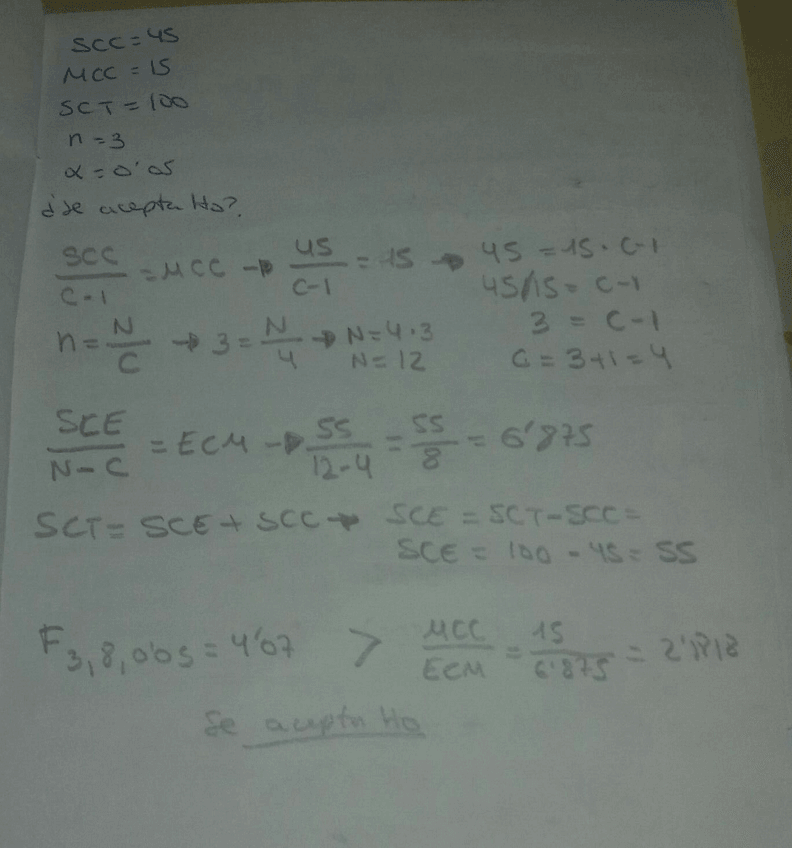 SCC = 45
MCC = 15
SCT = 100
n = 3
α = 0'05
¿Se acepta Ho?
SCC / C-1 = MCC → 45 / C-1 = 15 → 45 = 15 · C-1
45/15 = C-1
3 = C-1
C = 3+1 = 4
n = N / C → 3 = N / 4 → N = 4·3
N = 12
SCE / N-C = ECM → 55 / 12-4 = 55 / 8 = 6'875
SCT = SCE + SCC → SCE = SCT - SCC =
SCE = 100 - 45 = 55
F 3, 8, 0'05 = 4'07 > MCC / ECM = 15 / 6'875 = 2'1818
Se acepta Ho